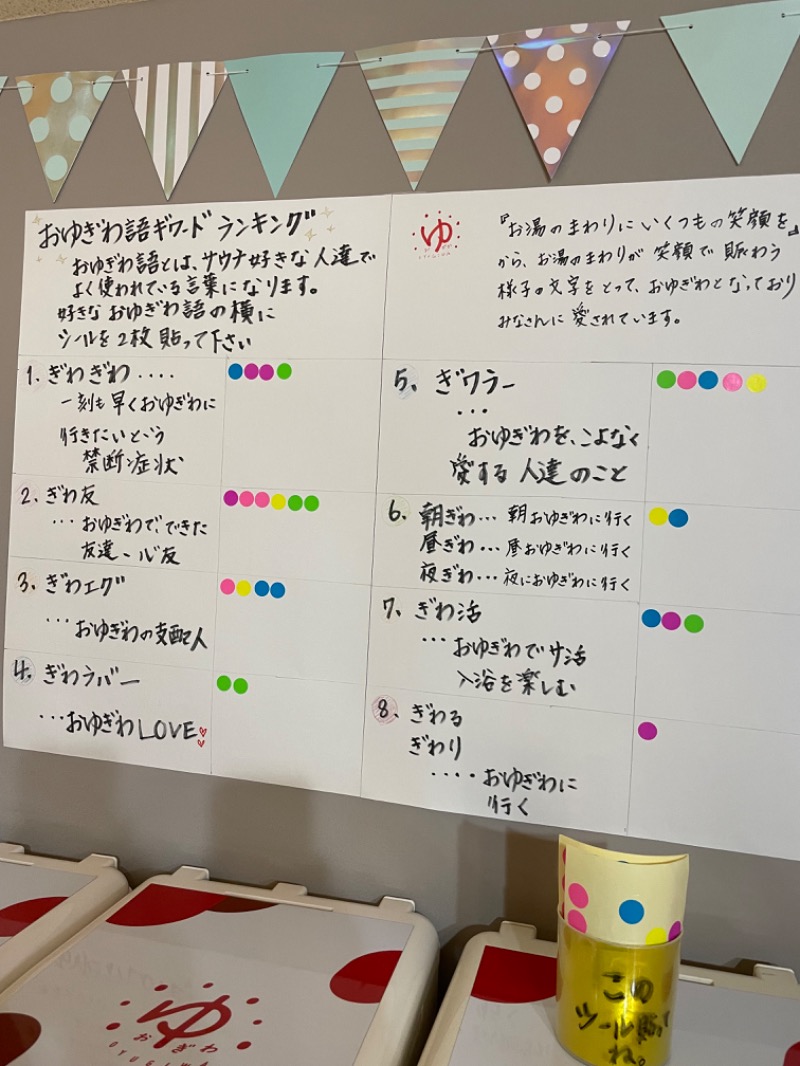 おゆぎわ語ギワードランキング
おゆぎわ語とは、サウナ好きな人達で
よく使われている言葉になります。
好きなおゆぎわ語の横に
シールを2枚貼って下さい
ゆ
OYUGIWA
『お湯のまわりにいくつもの笑顔を』
から、お湯のまわりが笑顔で賑わう
様子の文字をとって、おゆぎわとなっており
みなさんに愛されています。
1. ぎわぎわ・・・・
一刻も早くおゆぎわに
行きたいという
禁断症状
2. ぎわ友
・・・おゆぎわで、できた
友達~心友
3. ぎわエグ
・・・おゆぎわの支配人
4. ぎわラバー
・・・おゆぎわLOVE
5. ぎワラー
・・・
おゆぎわを、こよなく
愛する人達のこと
6. 朝ぎわ・・・朝おゆぎわに行く
昼ぎわ・・・昼おゆぎわに行く
夜ぎわ・・・夜におゆぎわに行く
7. ぎわ活
・・・おゆぎわでサ活
入浴を楽しむ
8. ぎわる
ぎわり
・・・・おゆぎわに
行く
ゆ
おゆぎわ
OYUGIWA
この
ツール貼って
ね。